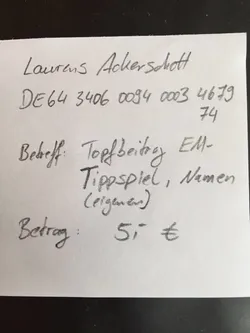 Laurens Ackerschott
DE64 3406 0094 0003 4679
74
Betreff: Topfbeitrag EM-
Tippspiel, Namen
(eigenen)
Betrag: 5,- €